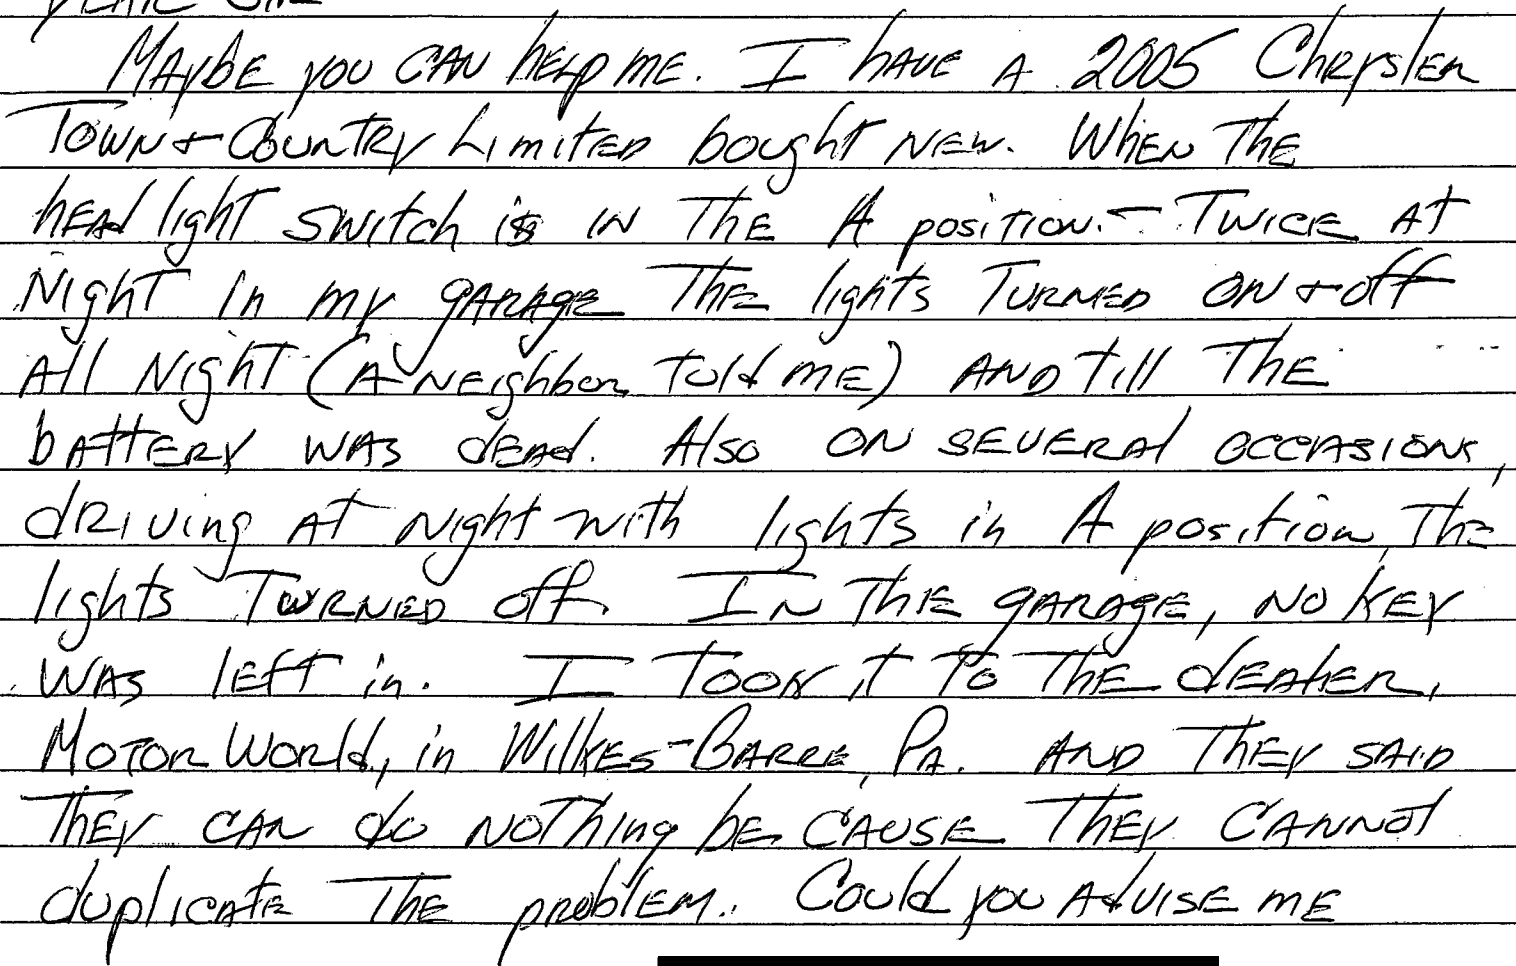 Maybe you can help me. I have a 2005 Chrysler
Town & Country Limited bought new. When the
head light switch is in the A position - Twice at
Night in my garage the lights turned on & off
all night (a neighbor told me) and till the
battery was dead. Also on several occasions,
driving at night with lights in A position, the
lights turned off. In the garage, no key
was left in. I took it to the dealer,
Motor World, in Wilkes-Barre, Pa. and they said
they can do nothing because they cannot
duplicate the problem. Could you advise me